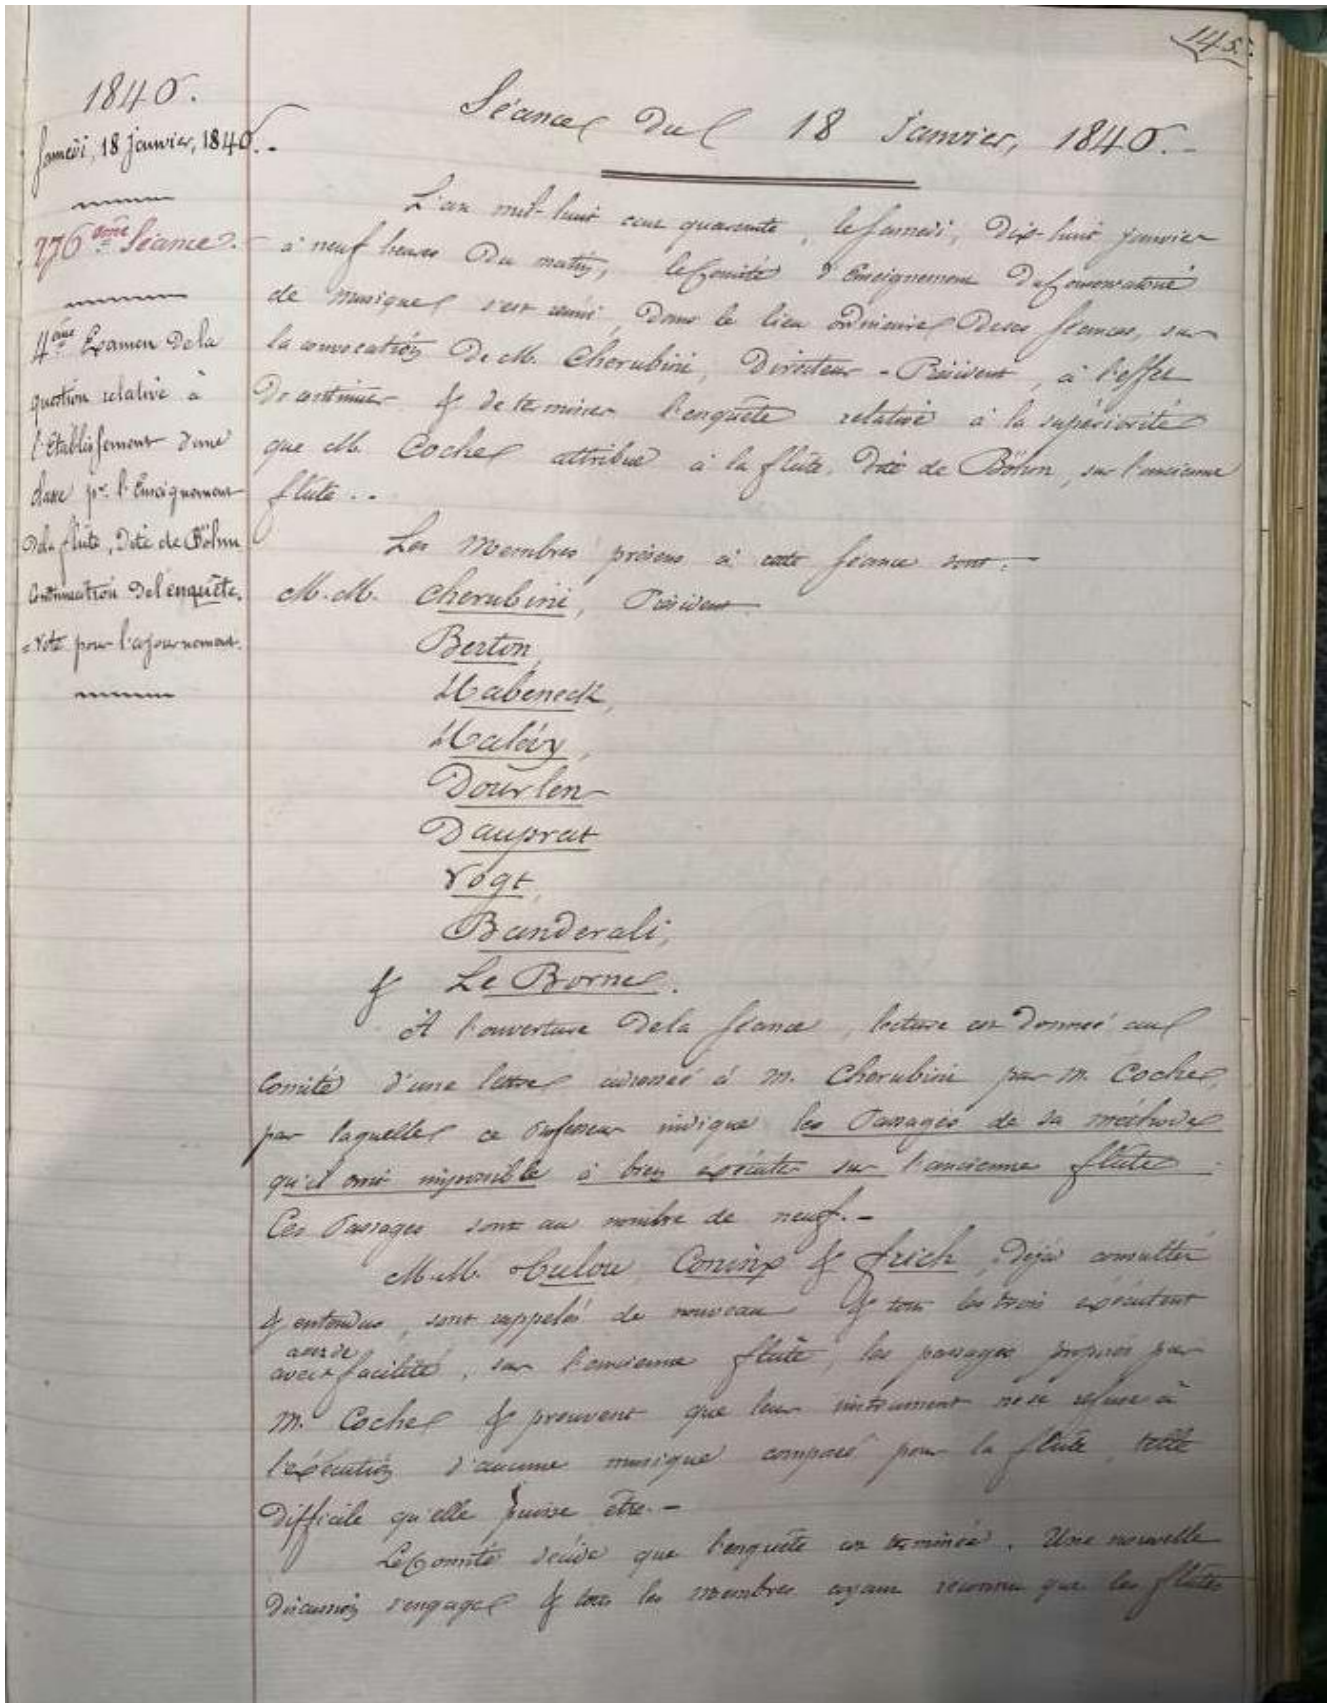 145.
1840.
Samedi, 18 Janvier, 1840.-
276ème Séance.
4ème Examen de la
question relative à
l'Etablissement d'une
classe pr. l'Enseignement
de la flûte, dite de Böhm
Continuation de l'enquête.
= Vote pour l'ajournement.
Séance du 18 Janvier, 1840.-
L'an mil-huit cent quarante, le Samedi, dix-huit janvier
à neuf heures du matin, le Comité d'Enseignement du Conservatoire
de musique s'est réuni, dans le lieu ordinaire de ses Séances, sur
la convocation de M. Cherubini, Directeur-Président, à l'effet
de continuer & de terminer l'enquête relative à la supériorité
que M. Coche attribue à la flûte, dite de Böhm, sur l'ancienne
flûte..
Les Membres présens à cette Séance sont:
M.M. Cherubini, Président.
Berton,
Habeneck,
Halévy,
Dourlen
Dauprat
Vogt,
Banderali,
& Le Borne.
A l'ouverture de la Séance, lecture est donnée au
Comité d'une lettre adressée à M. Cherubini par M. Coche,
par laquelle ce Professeur indique les Passages de sa méthode
qu'il croit impossible à bien exécuter sur l'ancienne flûte.
Ces Passages sont au nombre de neuf.-
M.M. Tulou, Coninx & Frich, déjà consultés
& entendus, sont rappelés de nouveau & tous les trois exécutent
avec facilité, sur l'ancienne flûte, les passages par
M. Coche & prouvent que leur instrument ne se refuse à
l'exécution d'aucune musique composée pour la flûte, telle
difficile qu'elle puisse être.-
Le Comité décide que l'enquête est terminée. Une nouvelle
discussion s'engage & tous les membres ayant reconnu que les flûtes